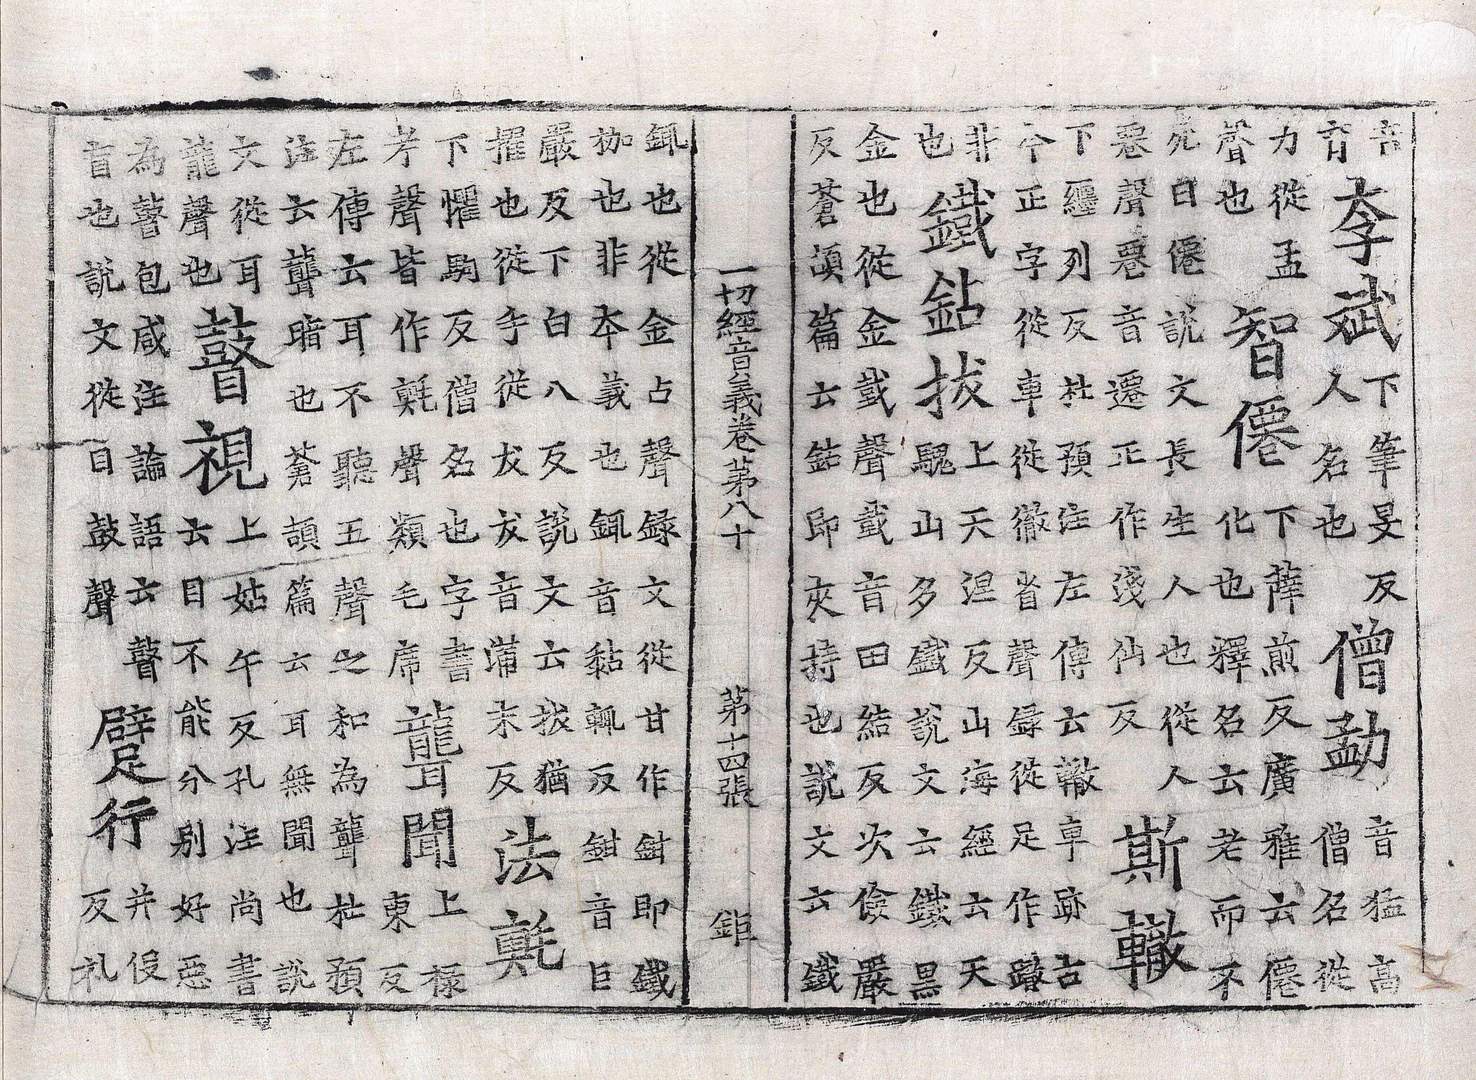 音育李斌下筆旻反人名也僧勐音猛高僧名從
力從孟聲也智僊下薛煎反廣雅云僊化也釋名云老而不
死曰僊說文長生人也從人䙴聲䙴音遷正作淺仙反斯轍
下纏列反杜預注左傳云轍車跡古今正字從車從徹省聲錄從足作
非也鐵鉆拔上天涅反山海經云天騩山多鐵說文云鐵黑
金也從金戜聲戜音田結反次儉嚴反蒼頡篇云鉆即夾持也說文云鐵
一切經音義卷第八十 第十四張 鉅
銸也從金占聲録文從甘作鉗即鐵枷也非本義也銸音黏輒反鉗音巨
嚴反下白八反說文云拔猶擢也從手從犮犮音蒲末反法氍
下懼駒反僧名也字書考聲皆作氍聲類毛席聾聞上祿東反
左傳云耳不聽五聲之和為聾杜預注云聾暗也蒼頡篇云耳無聞也說
文從耳龍聲也瞽視上姑午反孔注尚書云目不能分別好惡
為瞽包咸注論語云瞽盲也說文從目鼓聲躄行并伇反礼